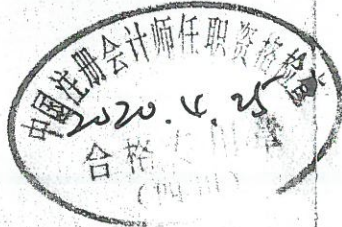 中国注册会计师任职资格检查
2020.4.25
合格专用章
(四川)